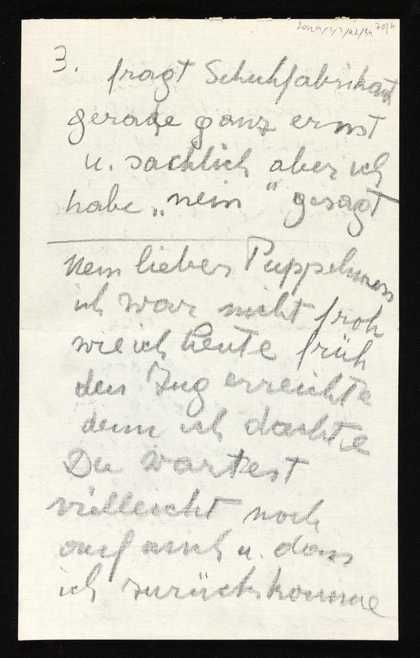 3. fragt Schuhfabrikant
gerade ganz ernst
u. sachlich aber ich
habe „nein" gesagt
Mein liebes
ich war nicht froh
wie ich heute früh
den Zug erreichte
denn ich dachte
Du wartest
vielleicht noch
auf mich u. dass
ich zurückkomme